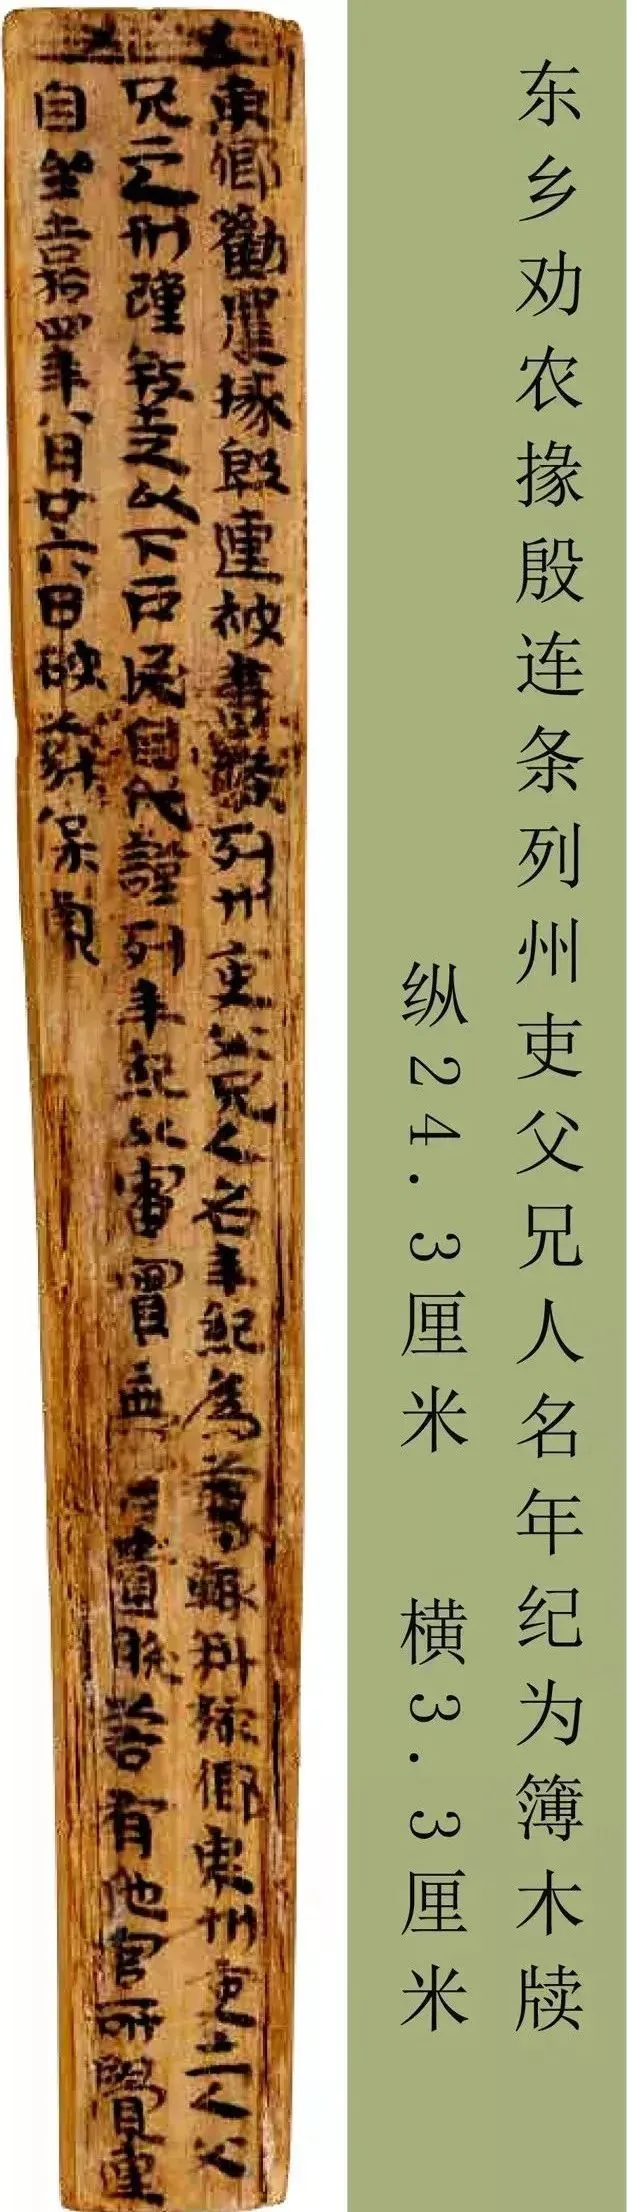 东乡劝农掾殷连条列州吏父兄人名年纪为簿木牍
纵24.3厘米 横3.3厘米
東鄉勸農掾殷連被書條列州吏父兄人名年紀為簿輒科核鄉界州吏二人父
兄二人刑踵叛走以下戶民自代謹列年紀以審實無有遺脫若有他官所覺連
自坐嘉禾四年八月廿六日破莂保據